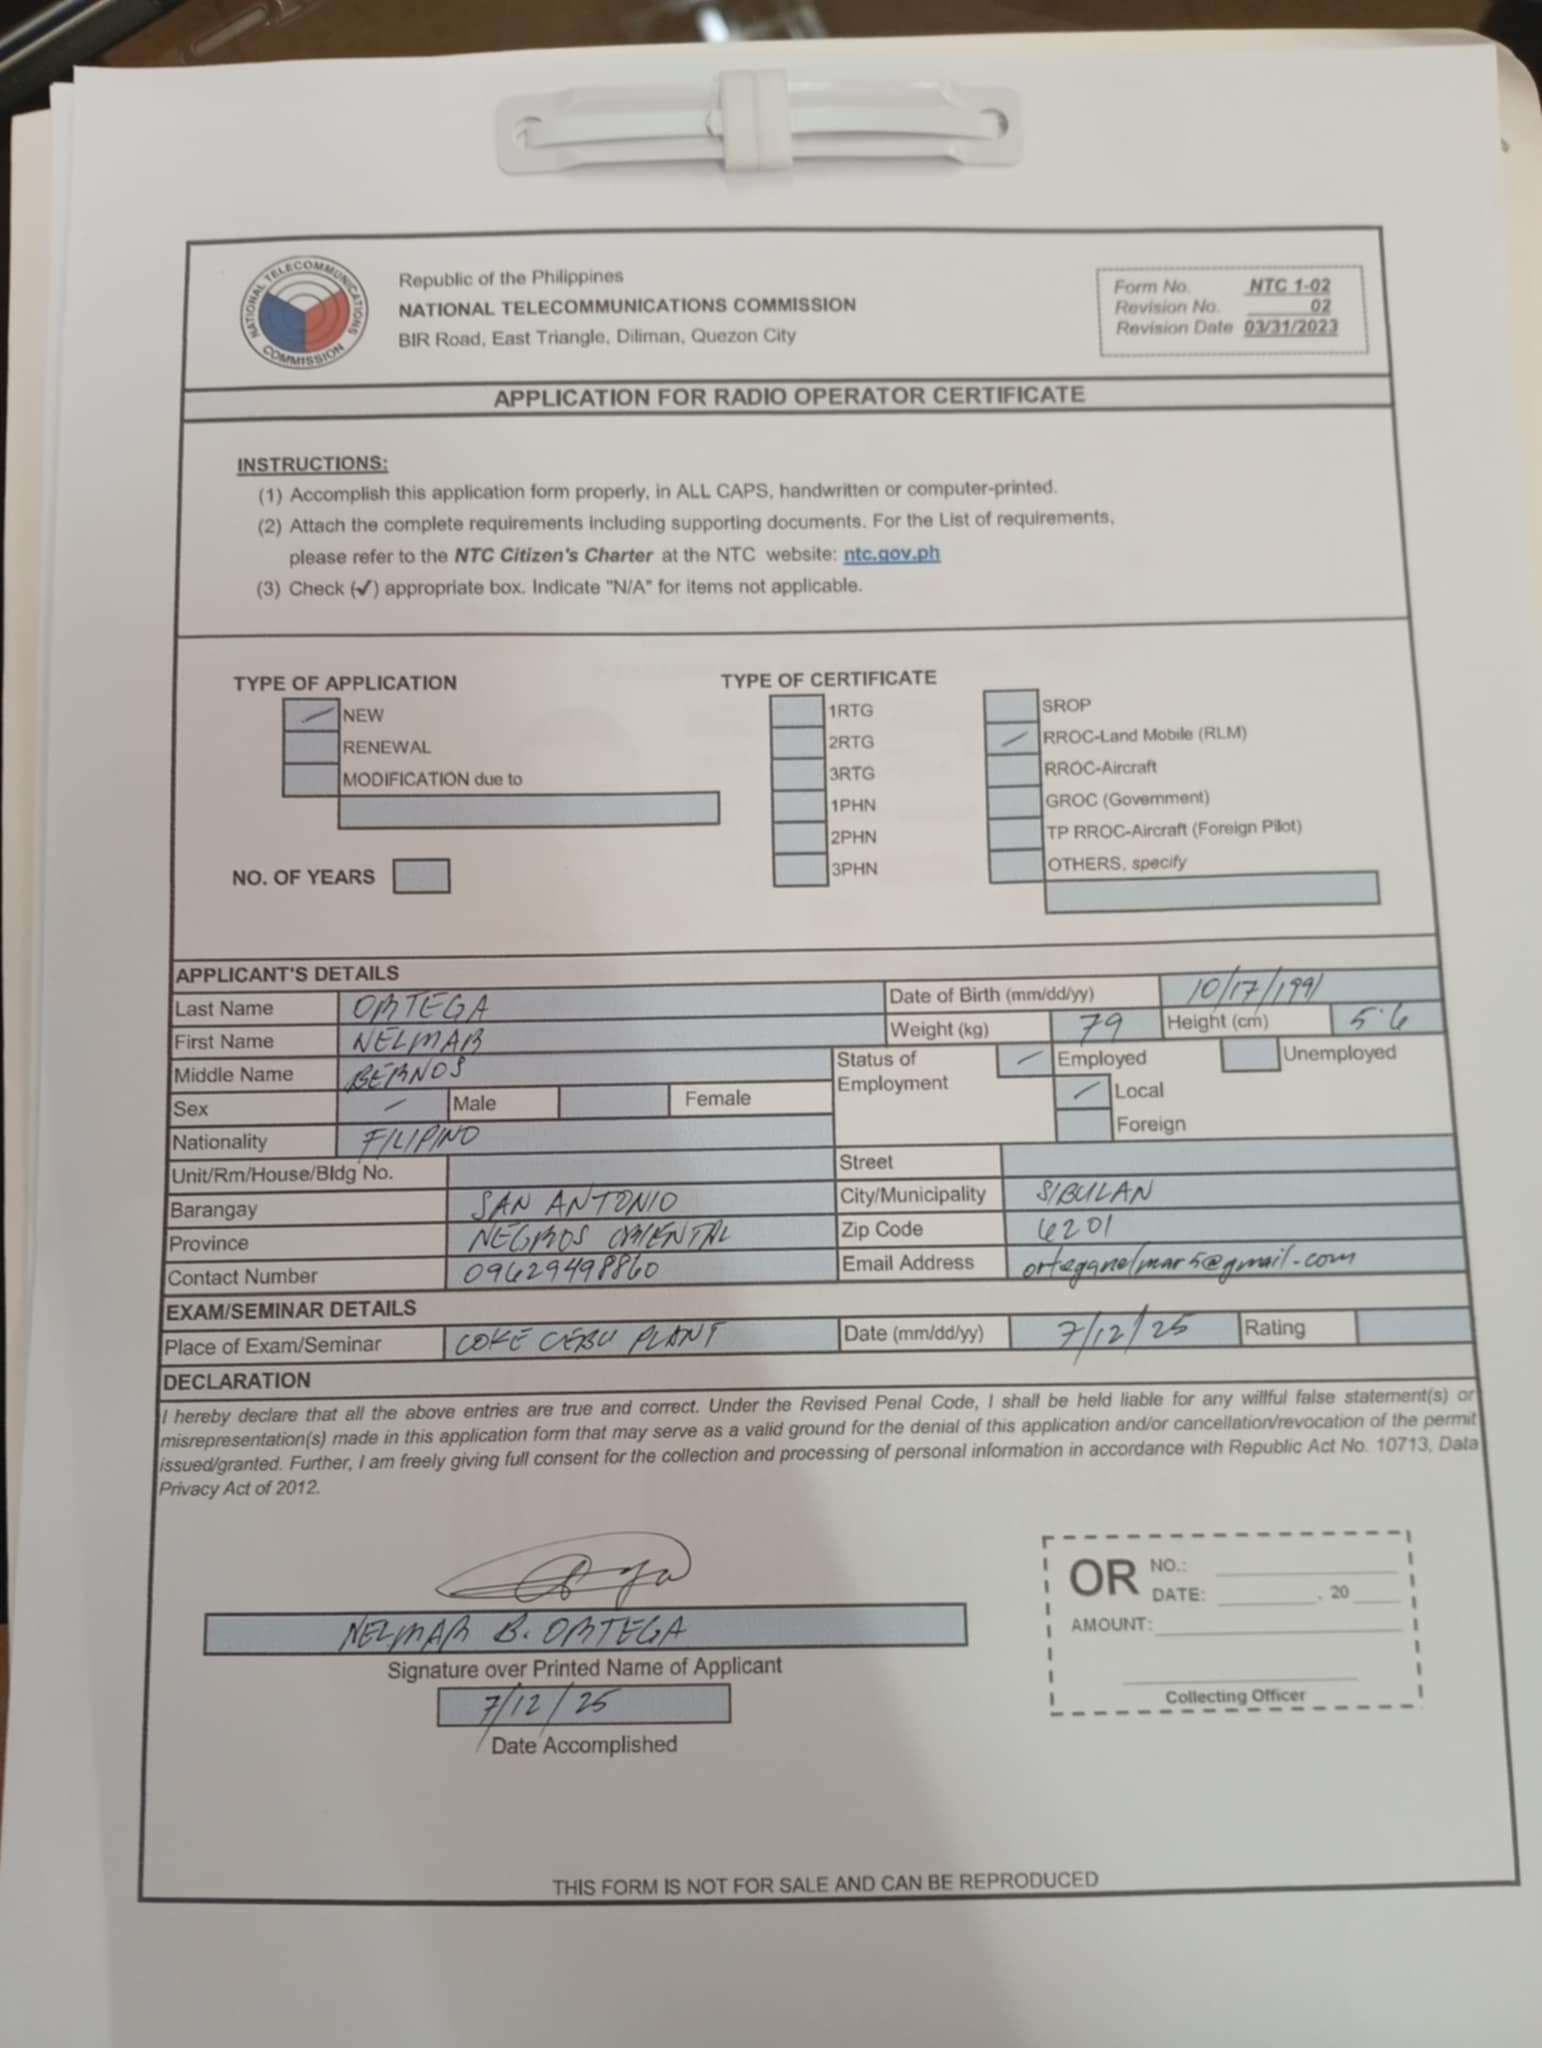 NATIONAL TELECOMMUNICATIONS COMMISSION
Republic of the Philippines
NATIONAL TELECOMMUNICATIONS COMMISSION
BIR Road, East Triangle, Diliman, Quezon City
Form No. NTC 1-02
Revision No. 02
Revision Date 03/31/2023
APPLICATION FOR RADIO OPERATOR CERTIFICATE
INSTRUCTIONS:
(1) Accomplish this application form properly, in ALL CAPS, handwritten or computer-printed.
(2) Attach the complete requirements including supporting documents. For the List of requirements,
please refer to the NTC Citizen's Charter at the NTC website: ntc.gov.ph
(3) Check (✓) appropriate box. Indicate "N/A" for items not applicable.
TYPE OF APPLICATION
NEW
RENEWAL
MODIFICATION due to
NO. OF YEARS
TYPE OF CERTIFICATE
1RTG
2RTG
3RTG
1PHN
2PHN
3PHN
SROP
RROC-Land Mobile (RLM)
RROC-Aircraft
GROC (Government)
TP RROC-Aircraft (Foreign Pilot)
OTHERS, specify
APPLICANT'S DETAILS
Last Name ORTEGA
Date of Birth (mm/dd/yy) 10/17/1991
First Name NELMAR
Weight (kg) 79 Height (cm) 5'6
Middle Name BERNOS
Status of Employment
Employed Unemployed
Local
Foreign
Sex Male Female
Nationality FILIPINO
Unit/Rm/House/Bldg No. Street
Barangay SAN ANTONIO City/Municipality SIBULAN
Province NEGROS ORIENTAL Zip Code 6201
Contact Number 09629498860 Email Address orteganelmar5@gmail.com
EXAM/SEMINAR DETAILS
Place of Exam/Seminar COKE CEBU PLANT Date (mm/dd/yy) 7/12/25 Rating
DECLARATION
I hereby declare that all the above entries are true and correct. Under the Revised Penal Code, I shall be held liable for any willful false statement(s) or
misrepresentation(s) made in this application form that may serve as a valid ground for the denial of this application and/or cancellation/revocation of the permit
issued/granted. Further, I am freely giving full consent for the collection and processing of personal information in accordance with Republic Act No. 10713, Data
Privacy Act of 2012.
NELMAR B. ORTEGA
Signature over Printed Name of Applicant
7/12/25
Date Accomplished
OR NO.:
DATE: , 20
AMOUNT:
Collecting Officer
THIS FORM IS NOT FOR SALE AND CAN BE REPRODUCED